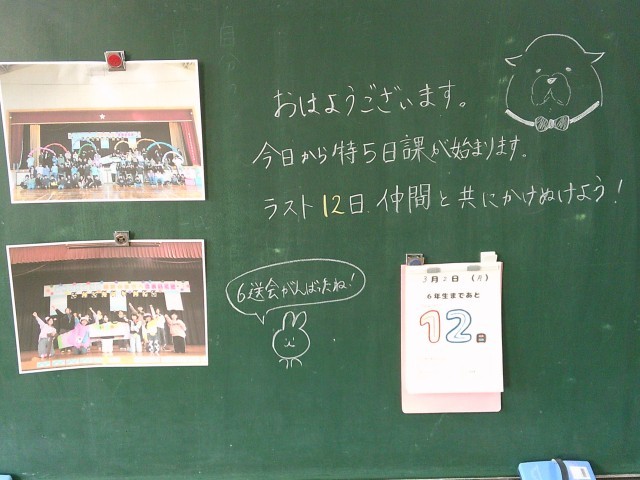 おはようございます。
今日から特5日課が始まります。
ラスト12日、仲間と共にかけぬけよう！
6送会がんばったね！
3月2日（月）
6年生まであと
12日